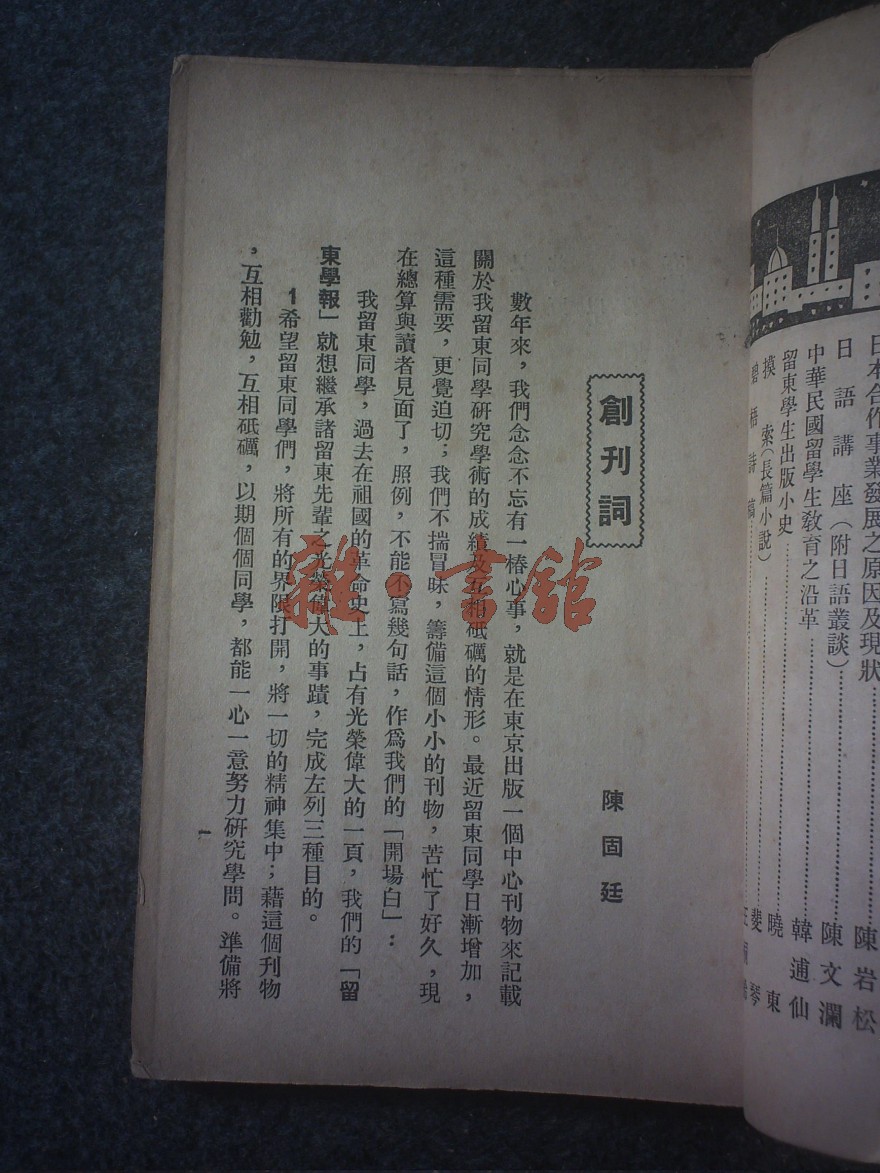 日本合作事業發展之原因及現狀……陳岩松
日語講座（附日語叢談）……陳文瀾
中華民國留學生敎育之沿革……韓逋仙
留東學生出版小史……曉東
摸索（長篇小說）……斐琴
創刊詞
陳固廷
數年來，我們念念不忘有一樁心事，就是在東京出版一個中心刊物來記載
關於我留東同學硏究學術的成績及互相砥礪的情形。最近留東同學日漸增加，
這種需要，更覺迫切；我們不揣冒昧，籌備這個小小的刊物，苦忙了好久，現
在總算與讀者見面了，照例，不能不寫幾句話，作爲我們的「開場白」：
我留東同學，過去在祖國的革命史上，占有光榮偉大的一頁，我們的「留
東學報」就想繼承諸留東先輩之光榮偉大的事蹟，完成左列三種目的。
1希望留東同學們，將所有的界限打開，將一切的精神集中；藉這個刊物
，互相勸勉，互相砥礪，以期個個同學，都能一心一意努力硏究學問。準備將
一
雜·書館